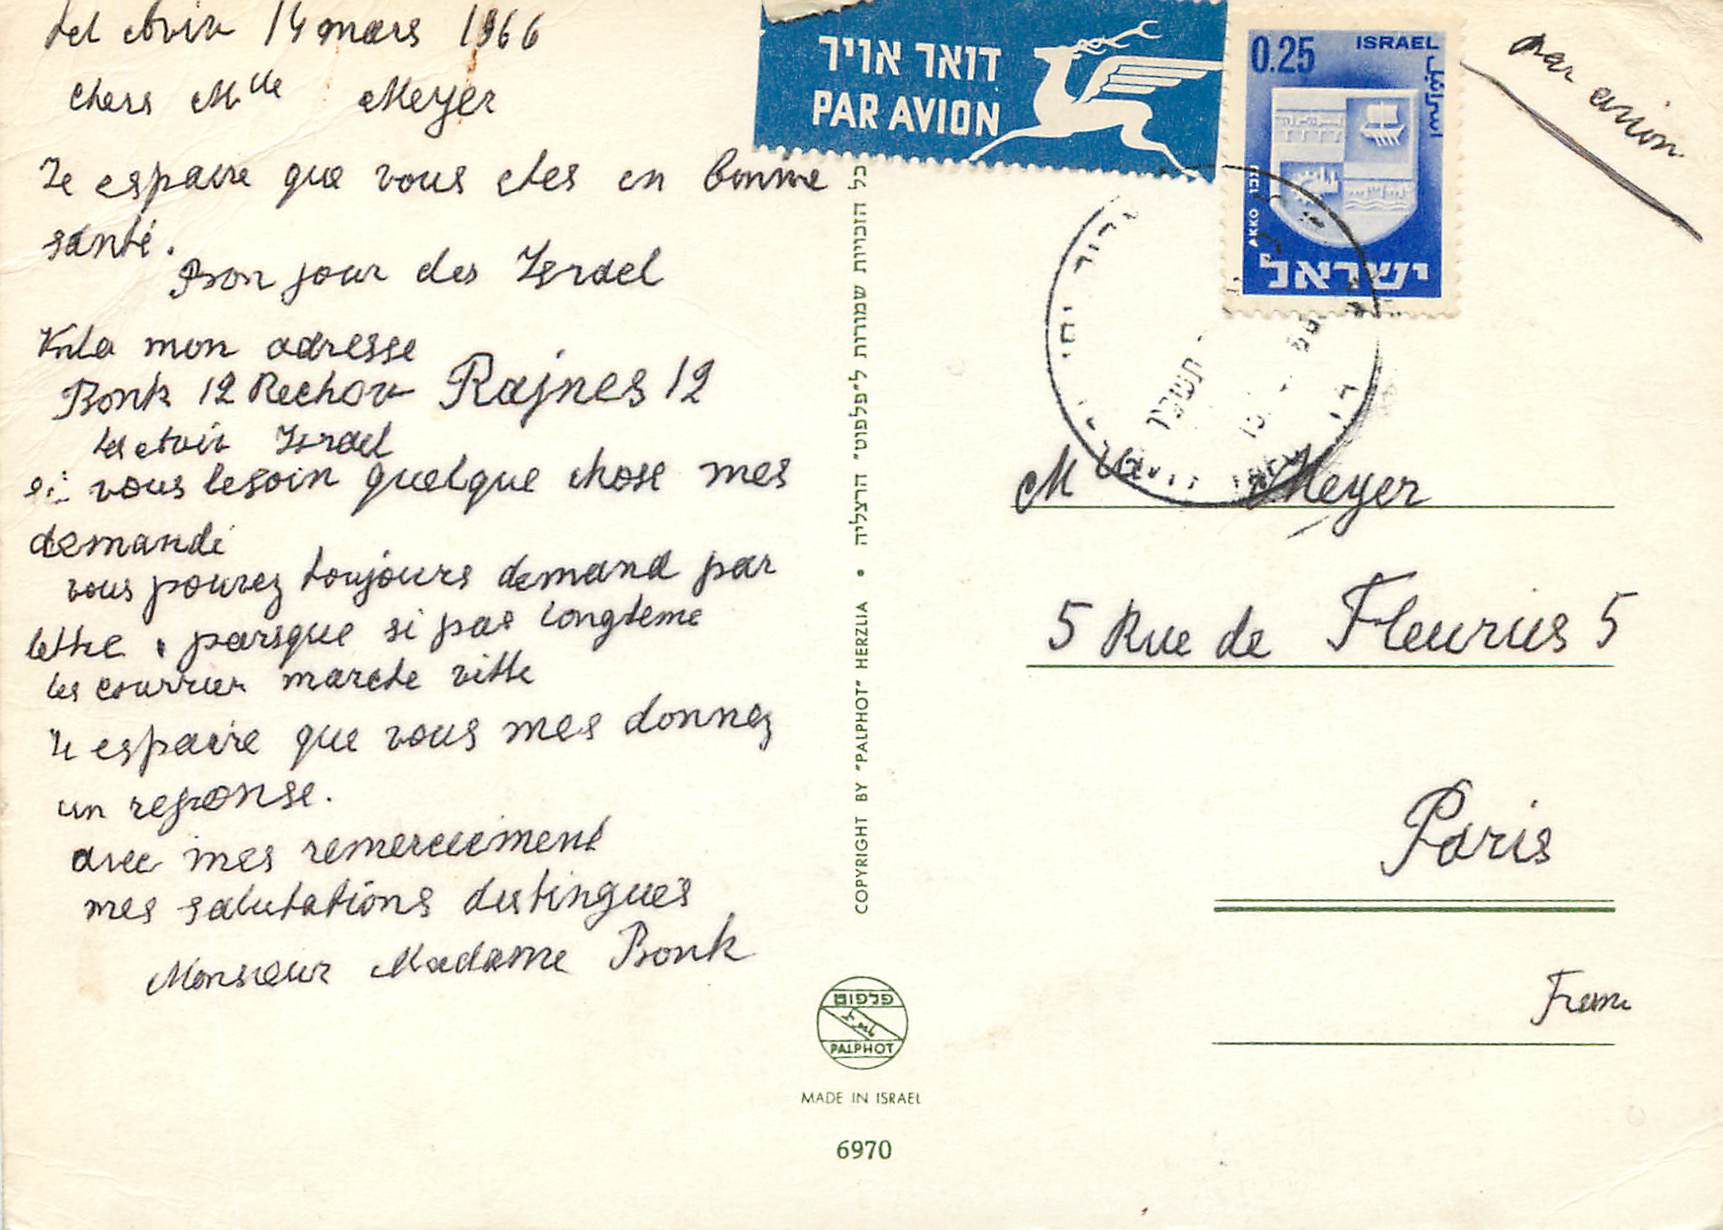 tel Aviv 14 mars 1966
chers Mlle Meyer
Je espaire que vous etes en bonne
santé.
Bon jour des Israel
Voila mon adresse
Bonk 12 Rechov Rajnes 12
tel Aviv Israel
si vous besoin quelque chose mes
demande
vous pouvez toujours demand par
lettre. parsque si pas longteme
les courrier marche vitte
Je espaire que vous mes donnez
un reponse.
avec mes remerceement
mes salutations distingues
Monsieur Madame Bonk
דואר אויר
PAR AVION
0.25 ISRAEL
اسرائيل
עכו AKKO
ישראל
par avion
תשכ״ו
M Meyer
5 Rue de Fleurus 5
Paris
כל הזכויות שמורות ל״פלפוט״ הרצליה • COPYRIGHT BY "PALPHOT" HERZLIA
פלפוט
PALPHOT
MADE IN ISRAEL
6970